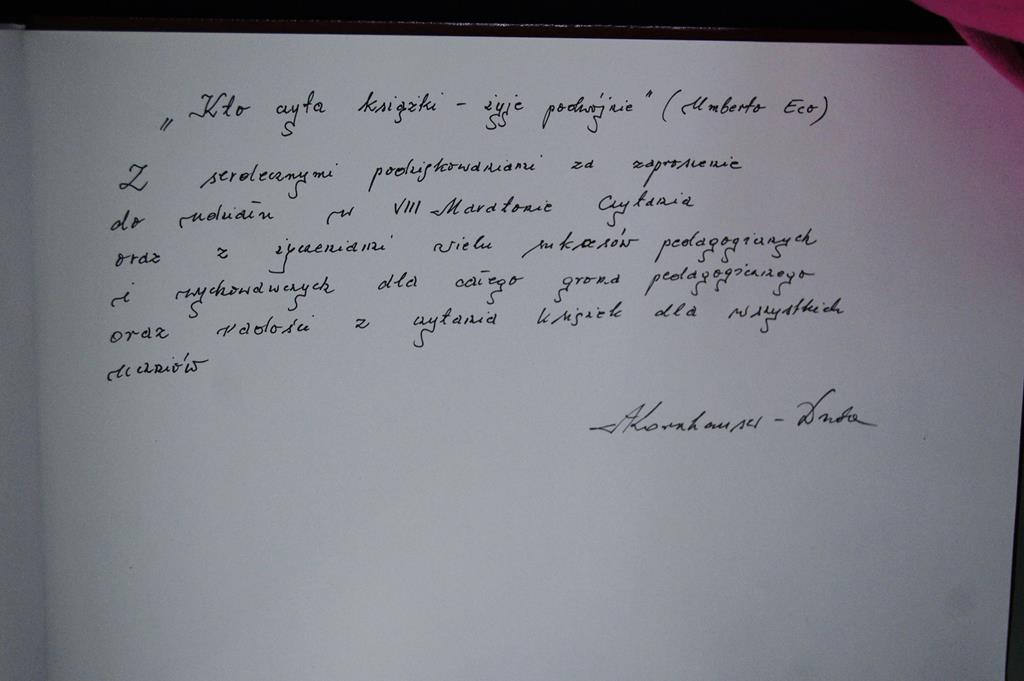 „Kto czyta książki - żyje podwójnie" (Umberto Eco)
Z serdecznymi podziękowaniami za zaproszenie
do udziału w VIII Maratonie Czytania
oraz z życzeniami wielu sukcesów pedagogicznych
i wychowawczych dla całego grona pedagogicznego
oraz radości z czytania książek dla wszystkich
uczniów
AKornhauser-Duda